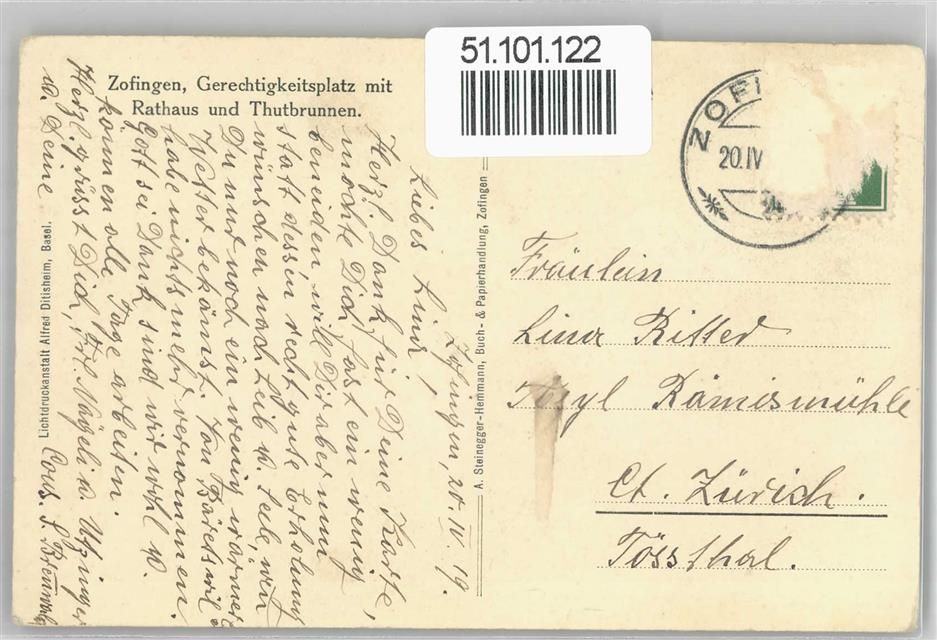 51.101.122
Zofingen, Gerechtigkeitsplatz mit
Rathaus und Thutbrunnen.
ZOFI
20.IV
Zofingen, 20. IV. 19.
Liebes Lini,
Herzl. Dank für Deine Karte,
möchte Dich fast ein wenig
beneiden, will Dir aber nun
statt dessen recht gute Erholung
wünschen nach Leib u. Seele, wen
Du nur noch ein wenig warmes
Wetter bekämst. Von Bäretswil
habe nichts mehr vernommen.
Gott sei Dank sind wir wohl u.
können alle Tage arbeiten.
Herzl. grüsst Dich, Frl. Nägeli u.
u. Deine
Fräulein
Lina Ritter
Rämismühle
Ct. Zürich.
Tössthal.
A. Steinegger-Hemmann, Buch- & Papierhandlung, Zofingen
Lichtdruckanstalt Alfred Ditisheim, Basel.